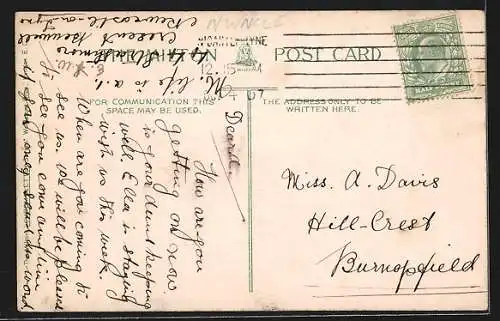 POST CARD
FOR COMMUNICATION THIS
SPACE MAY BE USED.
THE ADDRESS ONLY TO BE
WRITTEN HERE.
12.15
07
Miss. A. Davis
Hill-Crest
Burnopfield
How are you
getting on now
in your house keeping
well. Ella is staying
with us this week.
When are you coming to
see us. We will be pleased
to see you come any time
if you only send us word
Crescent Benwell
Newcastle-on-Tyne